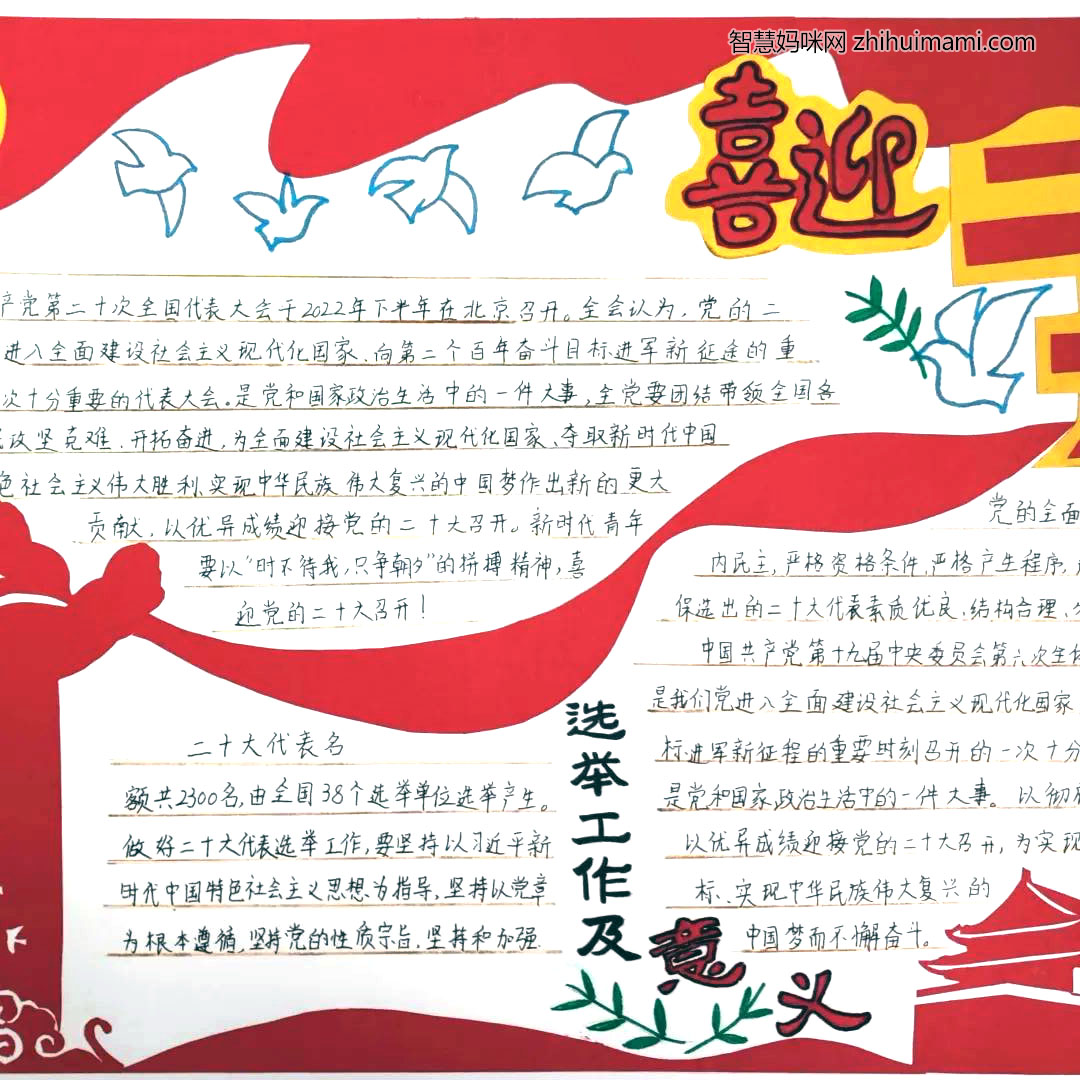 智慧妈咪网 zhihuimami.com
喜迎二
产党第二十次全国代表大会于2022年下半年在北京召开。全会认为,党的二
进入全面建设社会主义现代化国家、向第二个百年奋斗目标进军新征途的重
次十分重要的代表大会。是党和国家政治生活中的一件大事,全党要团结带领全国各
攻坚克难、开拓奋进,为全面建设社会主义现代化国家、夺取新时代中国
色社会主义伟大胜利、实现中华民族伟大复兴的中国梦作出新的更大
贡献,以优异成绩迎接党的二十大召开。新时代青年
要以“时不待我,只争朝夕”的拼搏精神,喜
迎党的二十大召开!
二十大代表名
额共2300名,由全国38个选举单位选举产生。
做好二十大代表选举工作,要坚持以习近平新
时代中国特色社会主义思想为指导,坚持以党章
为根本遵循,坚持党的性质宗旨,坚持和加强
选举工作及意义
党的全面
内民主,严格资格条件,严格产生程序,
保选出的二十大代表素质优良、结构合理、
中国共产党第十九届中央委员会第六次全体
是我们党进入全面建设社会主义现代化国家
标进军新征程的重要时刻召开的一次十分
是党和国家政治生活中的一件大事。以彻底
以优异成绩迎接党的二十大召开,为实现
标、实现中华民族伟大复兴的
中国梦而不懈奋斗。